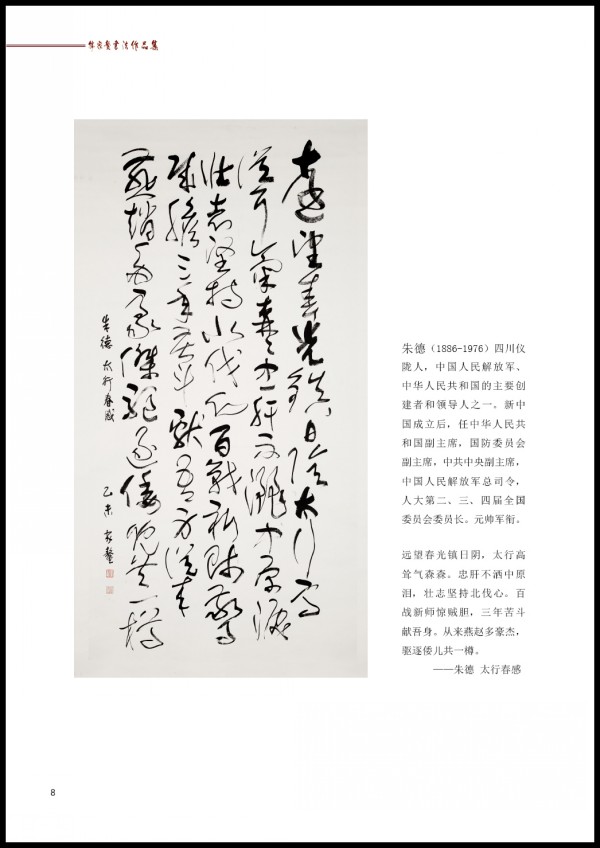 書法作品集
遠望春光鎮日陰太行高
聳氣森森忠肝不灑中原淚
壯志堅持北伐心百戰新師驚
賊膽三年苦斗獻吾身從來
燕趙多豪傑驅逐倭兒共一樽
朱德 太行春感
乙未 家鰲
朱德（1886-1976）四川仪
陇人，中国人民解放军、
中华人民共和国的主要创
建者和领导人之一。新中
国成立后，任中华人民共
和国副主席，国防委员会
副主席，中共中央副主席，
中国人民解放军总司令，
人大第二、三、四届全国
委员会委员长。元帅军衔。
远望春光镇日阴，太行高
耸气森森。忠肝不洒中原
泪，壮志坚持北伐心。百
战新师惊贼胆，三年苦斗
献吾身。从来燕赵多豪杰，
驱逐倭儿共一樽。
——朱德 太行春感
8